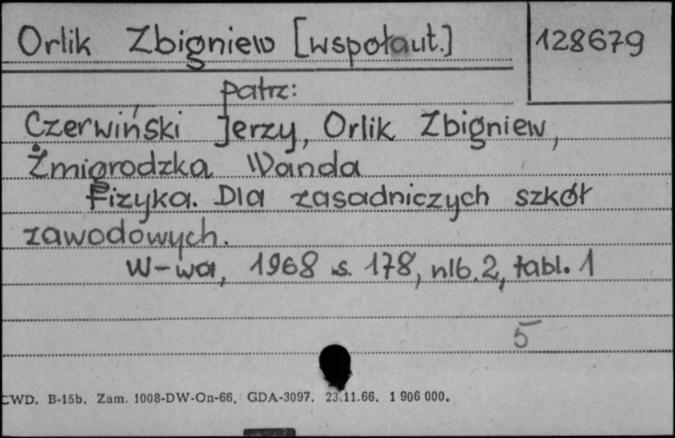 Orlik Zbigniew [współaut.]
128679
patrz:
Czerwiński Jerzy, Orlik Zbigniew,
Żmigrodzka Wanda
Fizyka. Dla zasadniczych szkół
zawodowych.
W-wa, 1968 s. 178, nlb. 2, tabl. 1
5
CWD. B-15b. Zam. 1008-DW-On-66. GDA-3097. 23.11.66. 1 906 000.